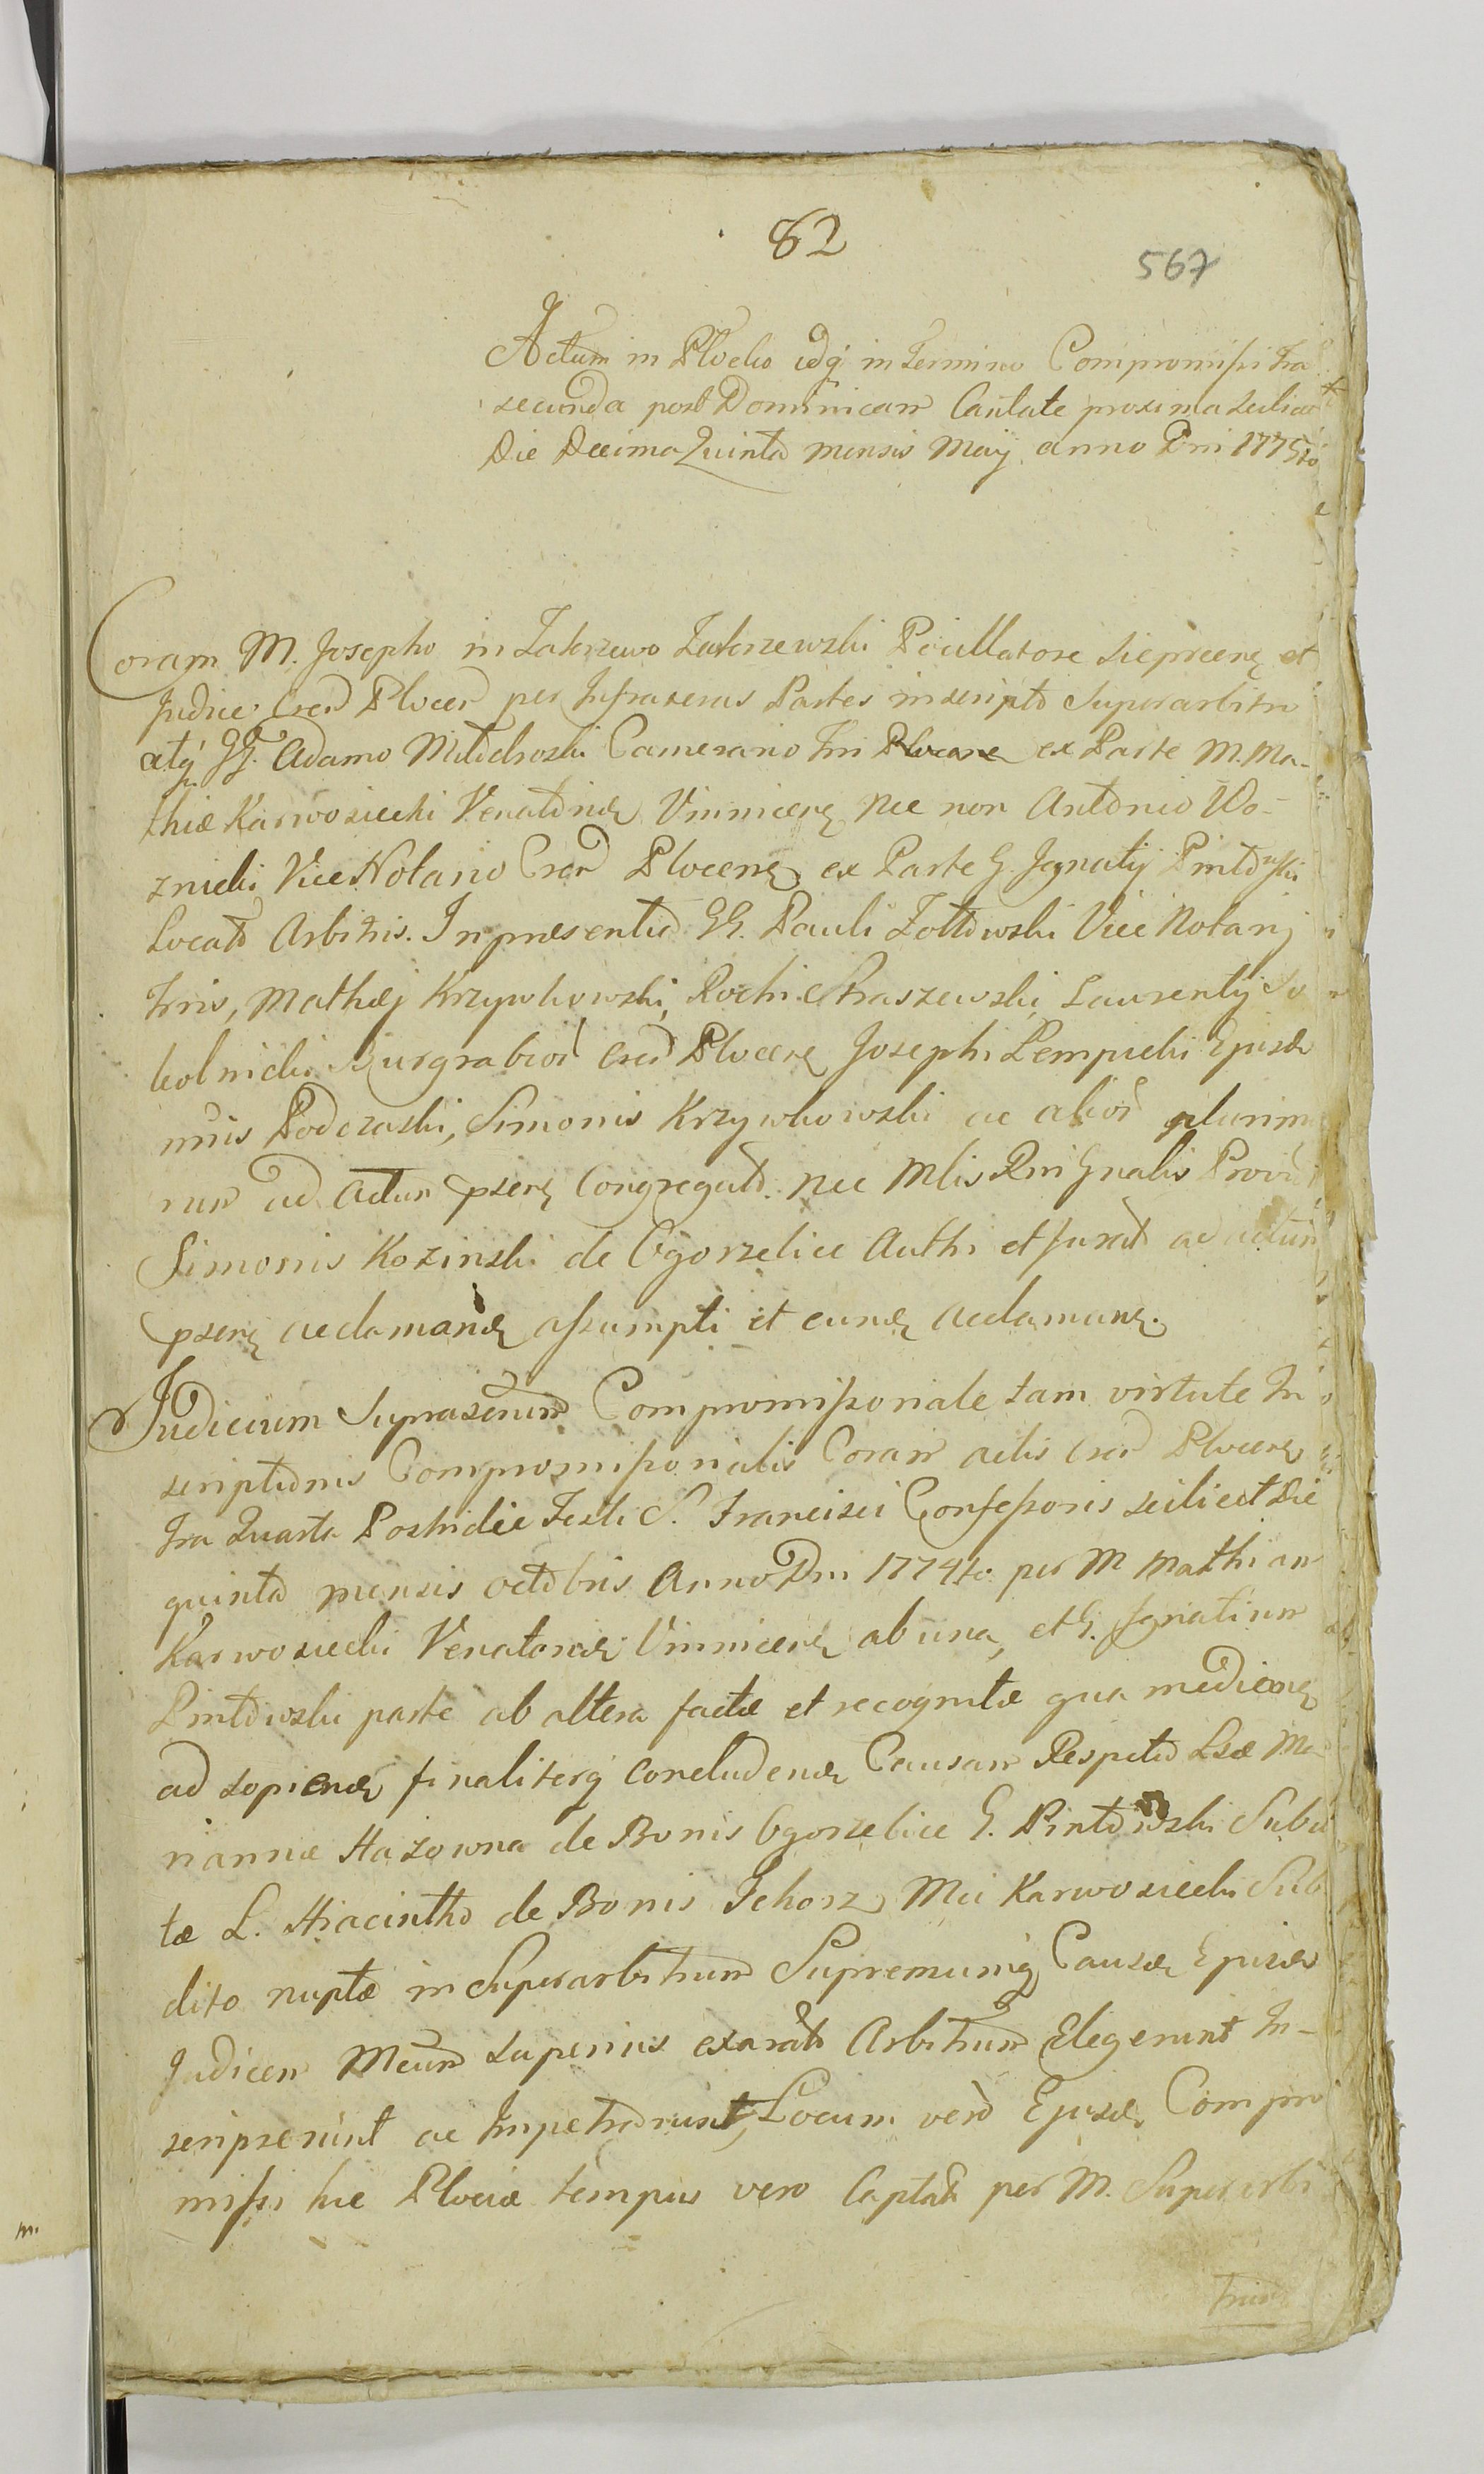 82
567
Actum in Plocko idq in Termino Compromissi Fra
secunda post Dominicam Cantate proxima scilicet
Die Decima Quinta mensis Maij anno Dni 1775to
Coram M. Josepho in Zakrzewo Zakrzewski Pocillatore Sieprcen et
Judice Cren Plocen per Infrascrtas Partes inscripto Superarbitro
atq GG. Adamo Miłodroski Camerario Trri Plocen ex Parte M. Ma-
thiæ Karwosiecki Venatoridæ Vinnicen nec non Antonio Wo-
znicki Vice Notario Cren Plocen ex Parte G. Ignatij Pintowski
Locato Arbitris. In præsentia GG. Pauli Zołtowski Vice Notarij
Trris, Mathæj Krzywkowski, Rochi Straszewski, Laurentij So
kolnicki Burgrabior Cren Plocen Josephi Lempicki Ejusd
muis Podczaski, Simonis Krzywkowski ac alior plurimo
rum ad actum psen Congregato. nec Mlis Rni Gnalis Providi
Simonis Kozinski de Ogorzelice Authi et Jurato ad actum
psen acclamand assumpti et eund acclaman.
Judicium Suprascrtum Compromissoriale tam virtute In
scriptionis Compromissorialis Coram actis Cren Plocen
Fra Quarta Postridie Festi S. Francisci Confessoris scilicet Die
quinta mensis octobris Anno Dni 1774to per M Mathiam
Karwosiecki Venatorid Vinnicen ab una, et G. Ignatium
Pintowski parte ab altera factæ et recognitæ qua median
ad sopiend finaliterq concludend Causam Respectu Lsæ Ma
riannæ Stazowna de Bonis Ogorzelice G. Pintowski Subdi
tæ L. Hiacintho de Bonis Tchorz Mci Karwosiecki Sub
dito nuptæ in Superarbitrum Supremumq Causæ Ejusd
Judicem Mcum superius exarato Arbitrum Elegerunt In-
scripserunt ac Impetrarunt, Locum vero Ejusd Compro
missi hic Plociæ tempus vero Captato per M. Superarbi
trum